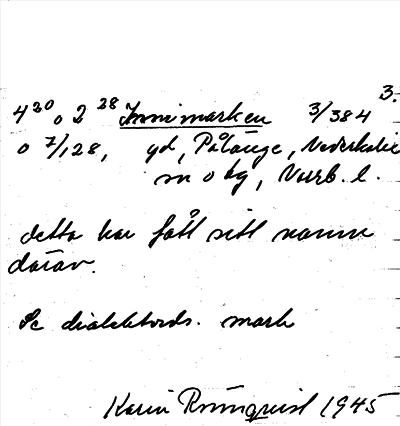 3.
4²⁰ o 2²⁸ Innimarken 3/384
o 7/128, gd, Pålänge, Nederkalix
sn o hg, Norrb. l.
detta har fått sitt namn
därav.
Se dialektords. mark
Karin Rönnqvist 1945